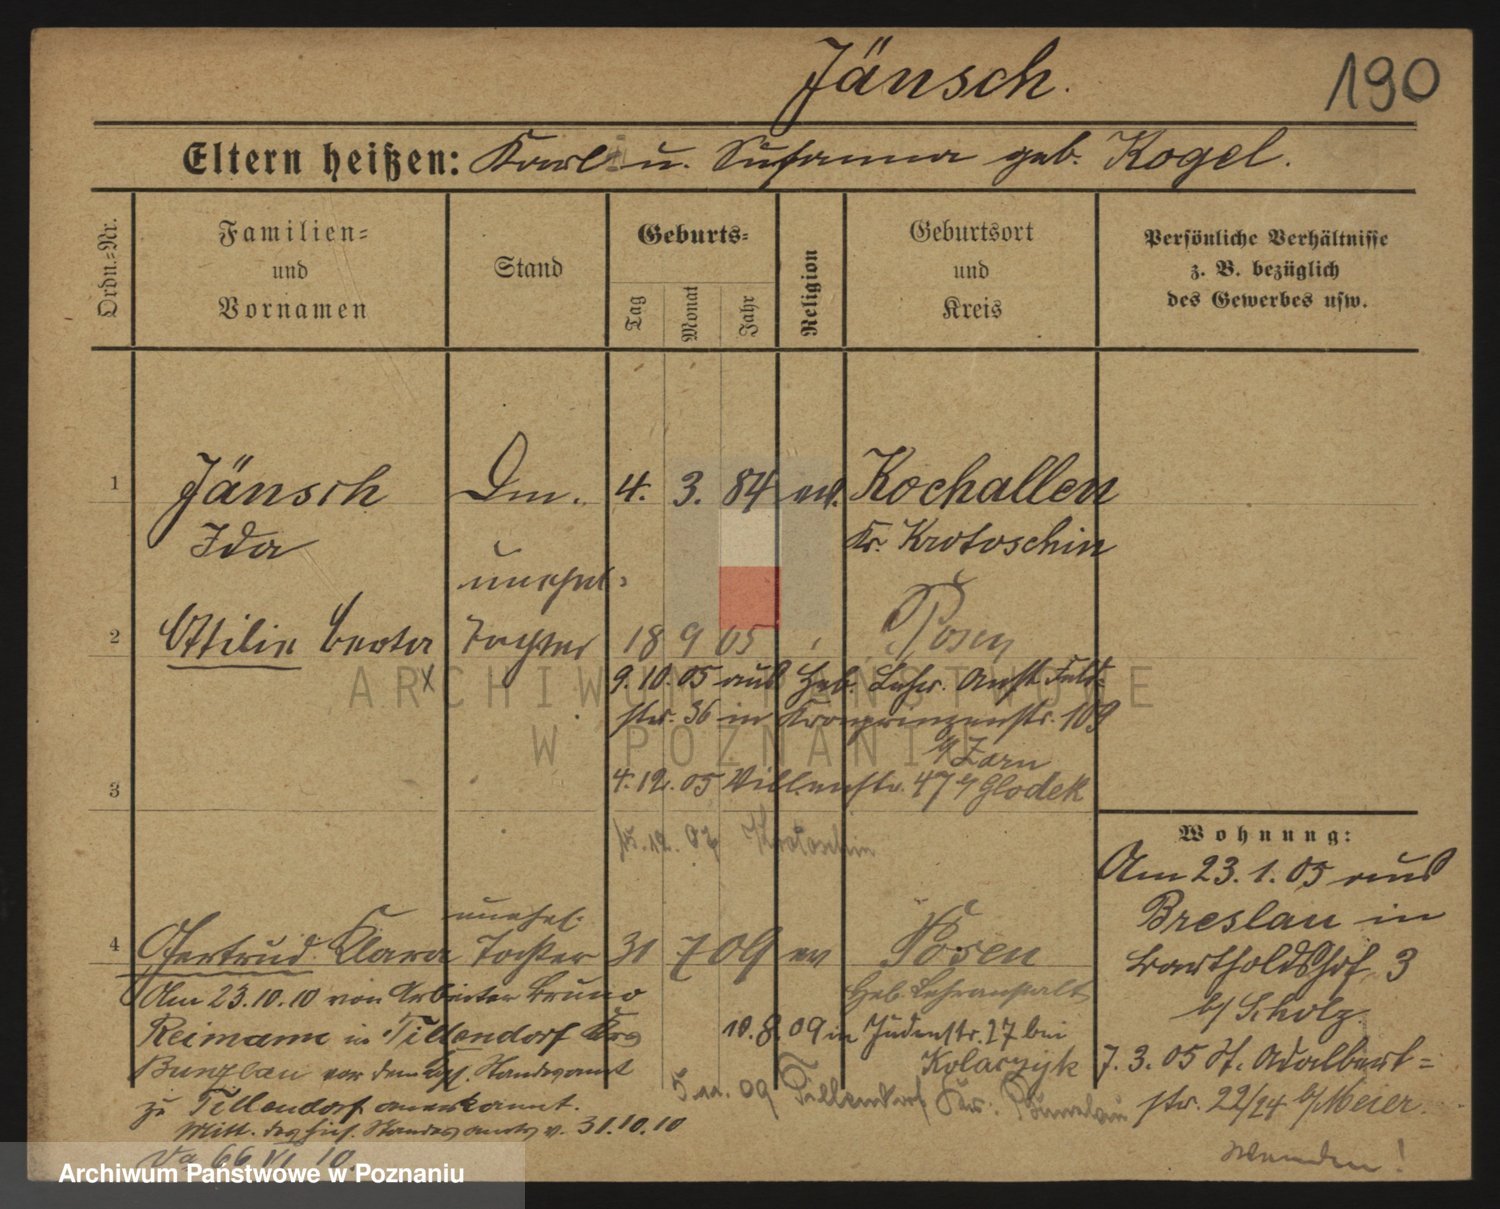 Jänsch.
190
Eltern heißen: Karl u. Susanna geb. Kogel.
Ordn.-Nr.
Familien- und Vornamen
Stand
Geburts-
Tag
Monat
Jahr
Religion
Geburtsort und Kreis
Persönliche Verhältnisse
z. B. bezüglich
des Gewerbes usw.
1 Jänsch Dm. 4. 3. 84 ev. Kochallen
Ida Kr. Krotoschin
unehel-
2 Ottilie Berta Tochter 18 9 05 Posen
9. 10. 05 aus Heb. Lehr. Anst. Feld-
str. 36 in Kronprinzenstr. 109
b/ Zorn
3
4. 12. 05 Villenstr. 47 b/ Glodek
12. 07 Krotoschin
unehel.
4 Gertrud Klara Tochter 31 7 09 ev Posen
Heb. Lehranstalt
Am 23.10.10 von Arbeiter Bruno
Reimann in Tillendorf Krs
Bunzlau vor dem Kgl. Standesamt
zu Tillendorf anerkannt.
Mitt. des Standesamts v. 31.10.10
Va 66 VI 10.
10. 8. 09 in Judenstr. 17 bei
Kolarzyk
5 11. 09 Tillendorf Kr. Bunzlau
Wohnung:
Am 23. 1. 05 aus
Breslau in
Bartholdshof 3
b/ Scholz
7. 3. 05 St. Adalbert-
str. 22/24 b/ Meier.
Wenden!
ARCHIWUM PAŃSTWOWE
W POZNANIU
Archiwum Państwowe w Poznaniu